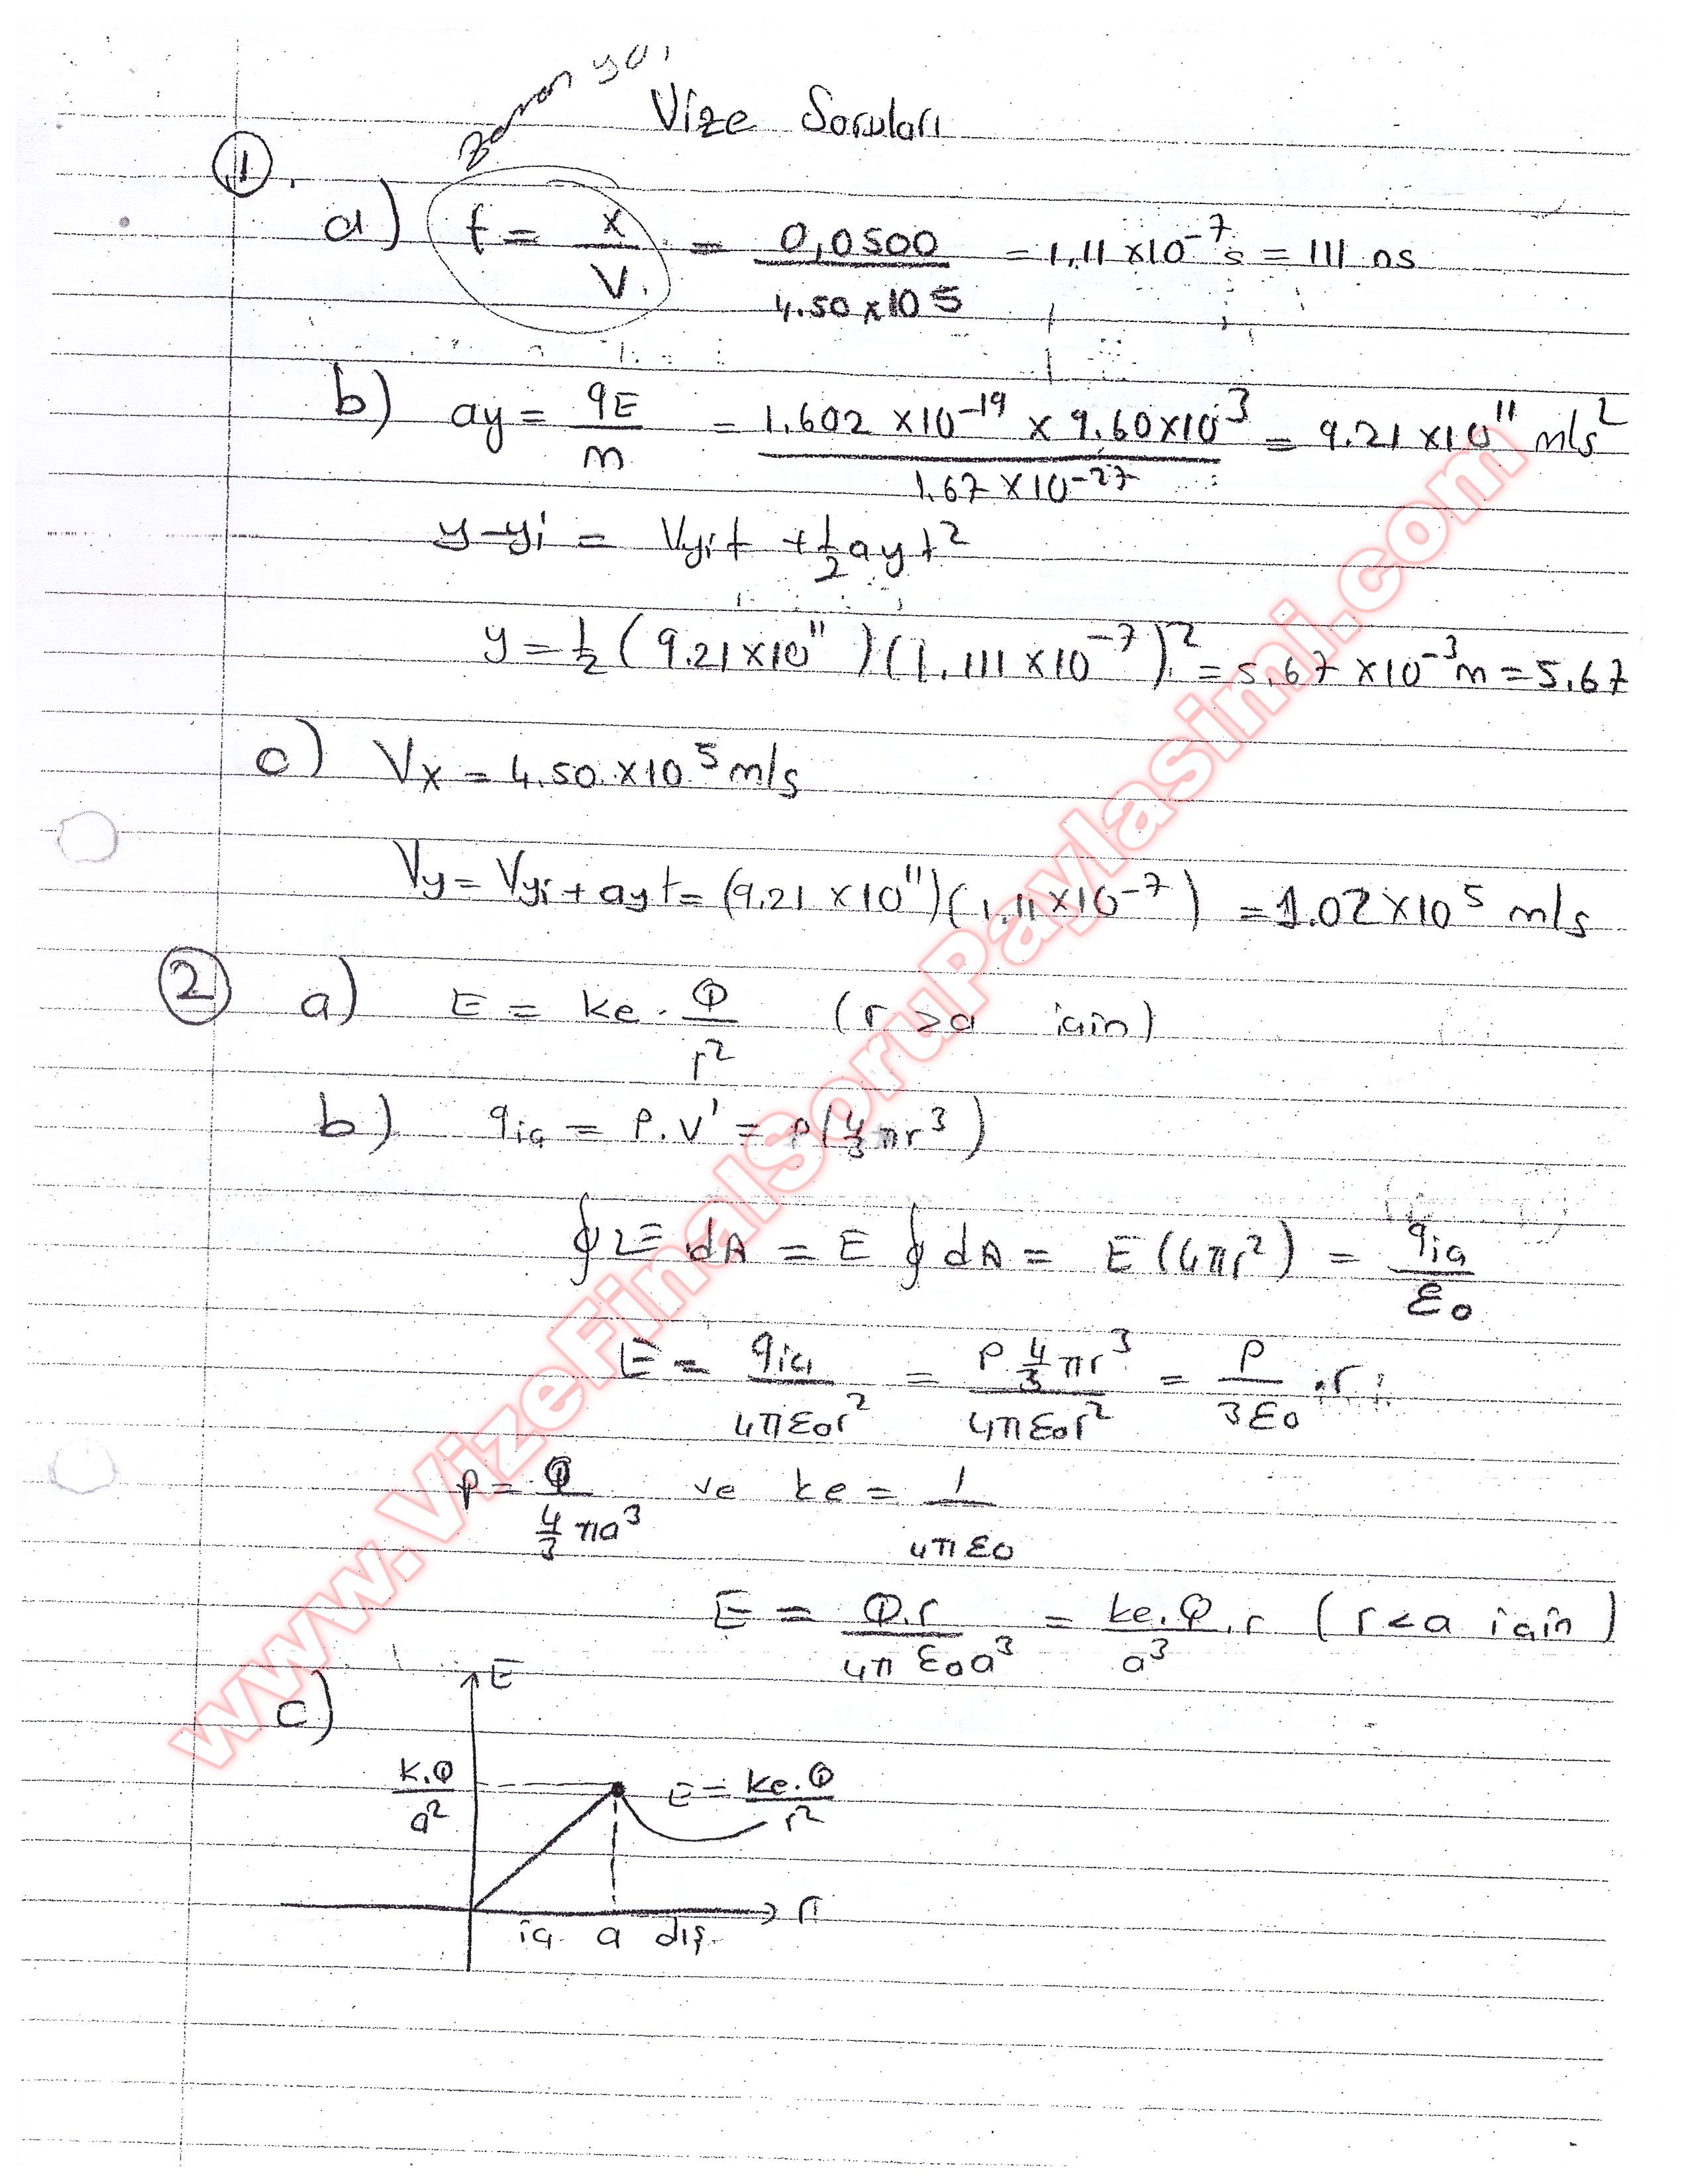 zaman yol
Vize Soruları
1.
a) t = x / V = 0,0500 / 4.50x10 5 = 1,11 x10⁻⁷ s = 111 ns
b) ay = qE / m = 1.602 x10⁻¹⁹ x 9.60x10³ / 1.67 x10⁻²⁷ = 9.21 x10¹¹ m/s²
y-yi = Vyit + 1/2 ay t²
y = 1/2 (9.21x10¹¹) (1.111x10⁻⁷)² = 5.67 x10⁻³ m = 5.67
c) Vx = 4.50.x10⁵ m/s
Vy = Vyi + ay t = (9.21 x10¹¹)(1.11x10⁻⁷) = 1.02x10⁵ m/s
2 a) E = ke . Q / r² (r > a için)
b) qiç = ρ.V' = ρ(4/3 πr³)
∮ E dA = E ∮ dA = E (4πr²) = qiç / ε0
E = qiç / 4πε0r² = ρ 4/3 πr³ / 4πε0r² = ρ / 3ε0 .r
ρ = Q / 4/3 πa³ ve ke = 1 / 4πε0
E = Q.r / 4π ε0a³ = ke.Q / a³ .r (r<a için)
c) E
k.Q / a² E = ke.Q / r²
r
iç a dış
www.VizeFinalSoruPaylasimi.com